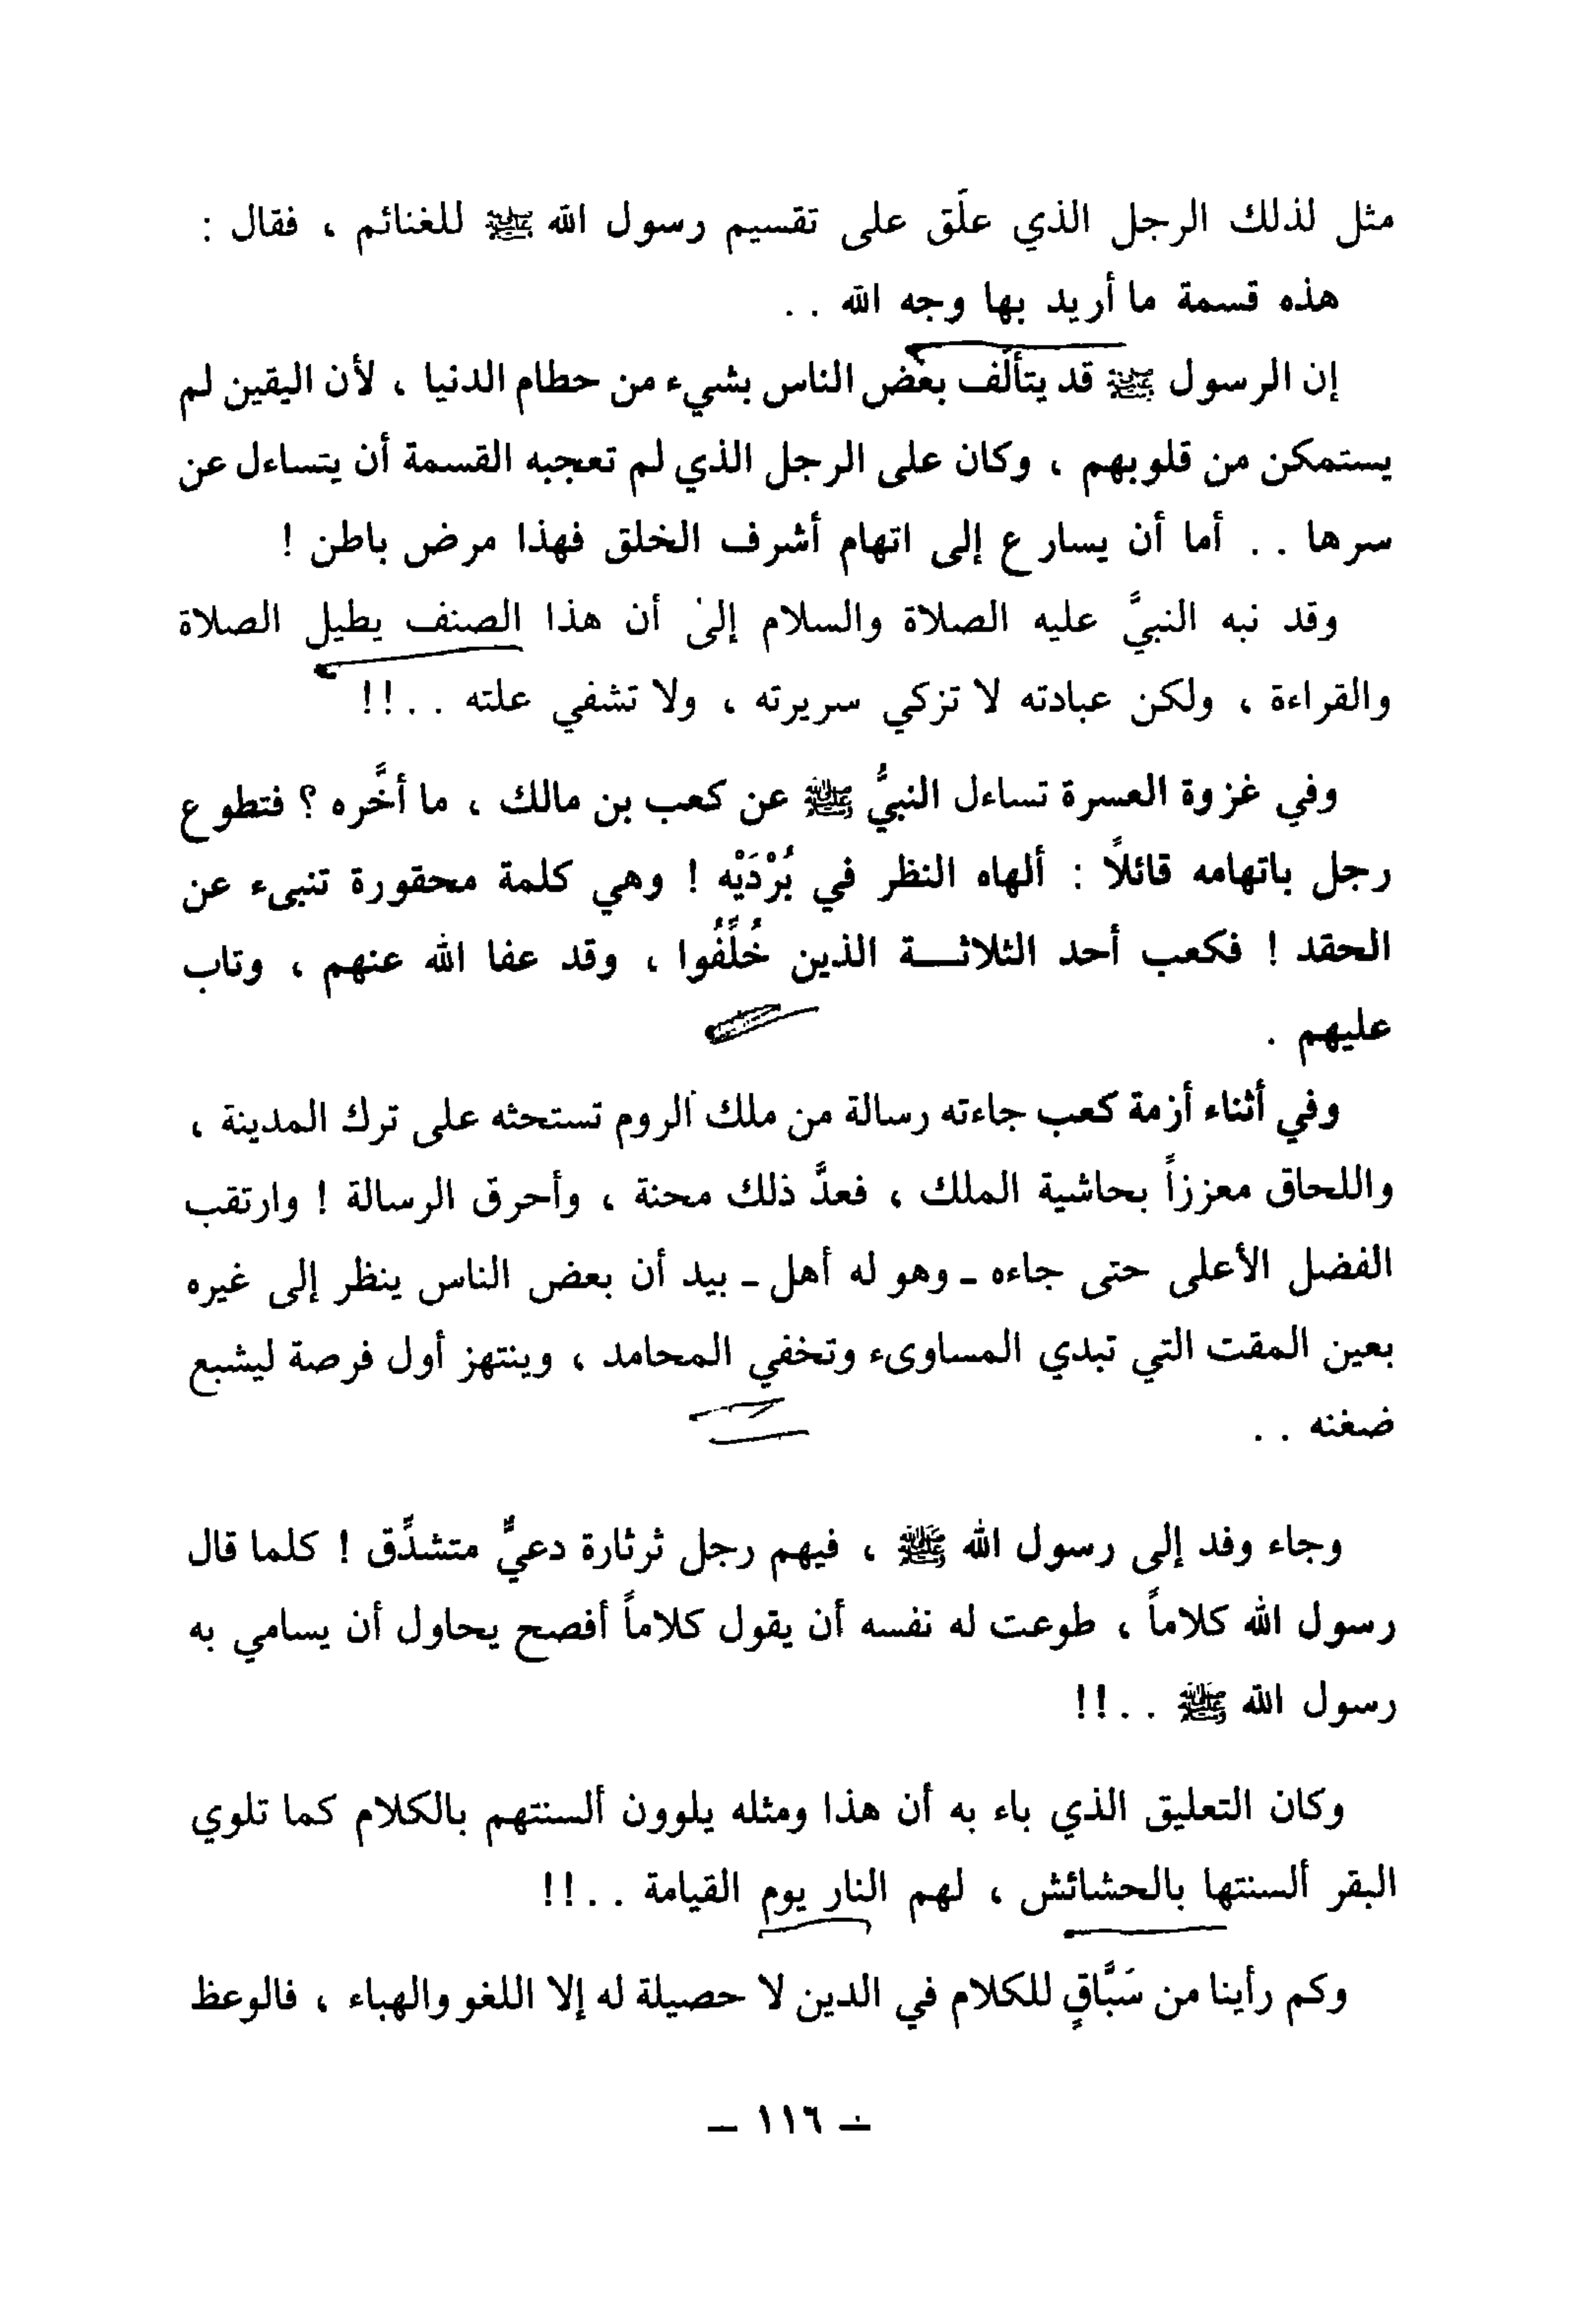 مثل لذلك الرجل الذي علَق على تقسيم رسول الله ﷺ للغنائم ، فقال :
هذه قسمة ما أريد بها وجه الله . .
إن الرسول ﷺ قد يتألّف بعض الناس بشيء من حطام الدنيا ، لأن اليقين لم
يستمكن من قلوبهم ، وكان على الرجل الذي لم تعجبه القسمة أن يتساءل عن
سرها . . أما أن يسارع إلى اتهام أشرف الخلق فهذا مرض باطن !
وقد نبه النبيَّ عليه الصلاة والسلام إلى أن هذا الصنف يطيل الصلاة
والقراءة ، ولكن عبادته لا تزكي سريرته ، ولا تشفي علته . . !!
وفي غزوة العسرة تساءل النبيُّ ﷺ عن كعب بن مالك ، ما أخَّره ؟ فتطوع
رجل باتهامه قائلاً : ألهاه النظر في بُرْدَيْه ! وهي كلمة محقورة تنبىء عن
الحقد ! فكعب أحد الثلاثـــة الذين خُلِّفُوا ، وقد عفا الله عنهم ، وتاب
عليهم .
وفي أثناء أزمة كعب جاءته رسالة من ملك الروم تستحثه على ترك المدينة ،
واللحاق معززاً بحاشية الملك ، فعدَّ ذلك محنة ، وأحرق الرسالة ! وارتقب
الفضل الأعلى حتى جاءه ـ وهو له أهل ـ بيد أن بعض الناس ينظر إلى غيره
بعين المقت التي تبدي المساوىء وتخفي المحامد ، وينتهز أول فرصة ليشبع
ضغنه . .
وجاء وفد إلى رسول الله ﷺ ، فيهم رجل ثرثارة دعيٌّ متشدِّق ! كلما قال
رسول الله كلاماً ، طوعت له نفسه أن يقول كلاماً أفصح يحاول أن يسامي به
رسول الله ﷺ . . !!
وكان التعليق الذي باء به أن هذا ومثله يلوون ألسنتهم بالكلام كما تلوي
البقر ألسنتها بالحشائش ، لهم النار يوم القيامة . . !!
وكم رأينا من سَبَّاقٍ للكلام في الدين لا حصيلة له إلا اللغو والهباء ، فالوعظ
– ١١٦ –